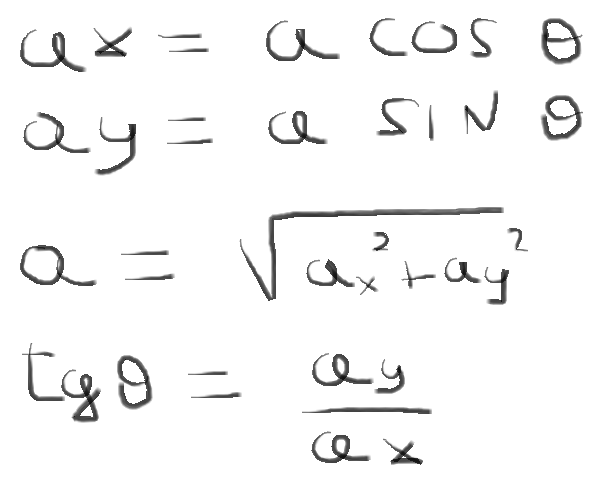 ax = a cos θ
ay = a SIN θ
a = √(aₓ² + ay²)
tg θ = ay / ax